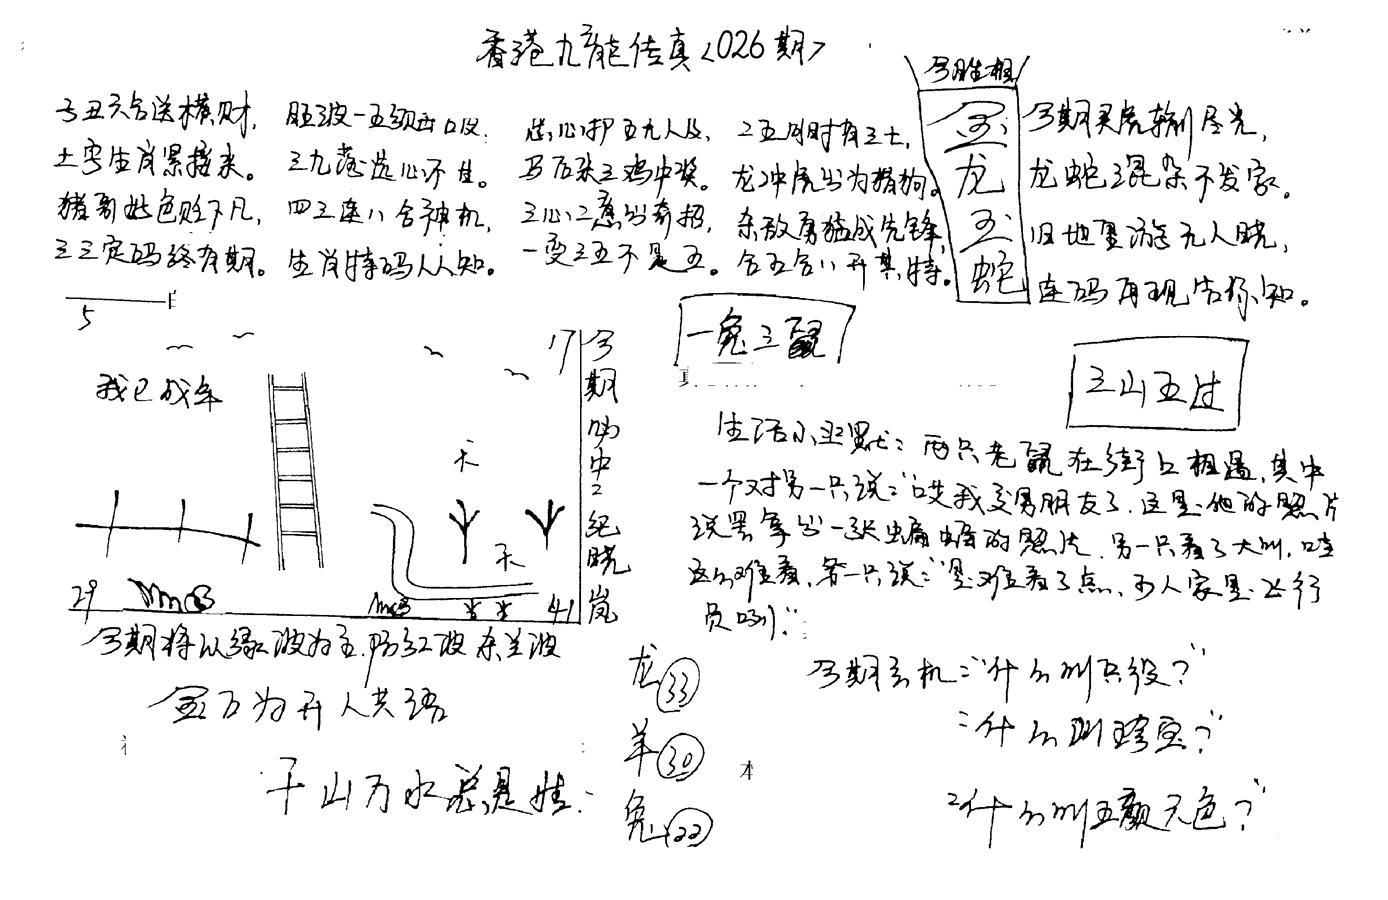 香港九龍传真<026期>
今期生相
金龙玉蛇
子丑六合送横财，
土字生肖紧接来。
猪哥好色贬下凡，
三三定码终有期。
旺波一五须出
三九落选心不甘。
四三连八合神机，
生肖特码人人知。
马后来三鸡中奖。
三心二意出奇招，
一变三五不是五。
龙冲虎出为猪狗。
杀敌勇猛成先锋，
合五合八开其特。
龙蛇混杂不发家。
旧地重游无人晓，
连码再现告你知。
5
一兔三鼠
三山五过
我已成年
17
天
天
29
41
今期
中
纪晓岚
今期将以绿波为主，防红波杀兰波
金口为开人共语
千山万水总是情
龙 33
羊 30
兔 22
生活小幽默：两只老鼠在街上相遇，其中
一个对另一只说："哎我交男朋友了，这是他的照片
说罢拿出一张蝙蝠的照片，另一只看了大叫，哇
这么难看，第一只说："是难看了点，可人家是飞行
员哟！"
今期玄机："什么叫兵役？"
："什么叫珍宝？"
："什么叫五颜六色？"
本